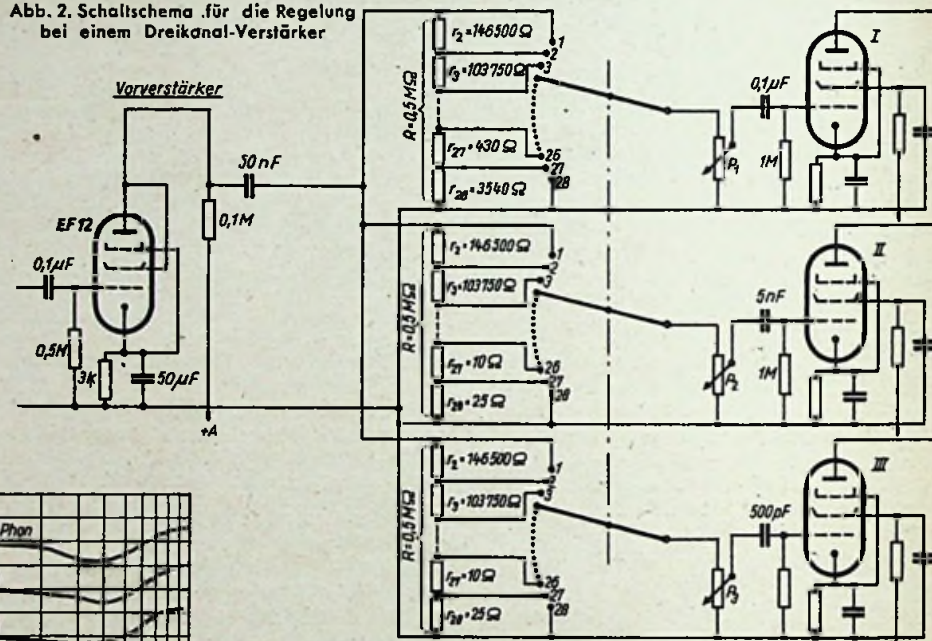 Abb. 2. Schaltschema .für die Regelung
bei einem Dreikanal-Verstärker
Vorverstärker
EF 12
0,1µF
0,5M
3k
50µF
+A
0,1M
50 nF
R=0,5MΩ
r2=146500Ω
r3=103750Ω
r27=430Ω
r28=3540Ω
1
2
3
26
27
28
P1
0,1µF
1M
I
R=0,5MΩ
r2=146500Ω
r3=103750Ω
r27=10Ω
r28=25Ω
1
2
3
26
27
28
P2
5nF
1M
II
R=0,5MΩ
r2=146500Ω
r3=103750Ω
r27=10Ω
r28=25Ω
1
2
3
26
27
28
P3
500pF
III
Phon